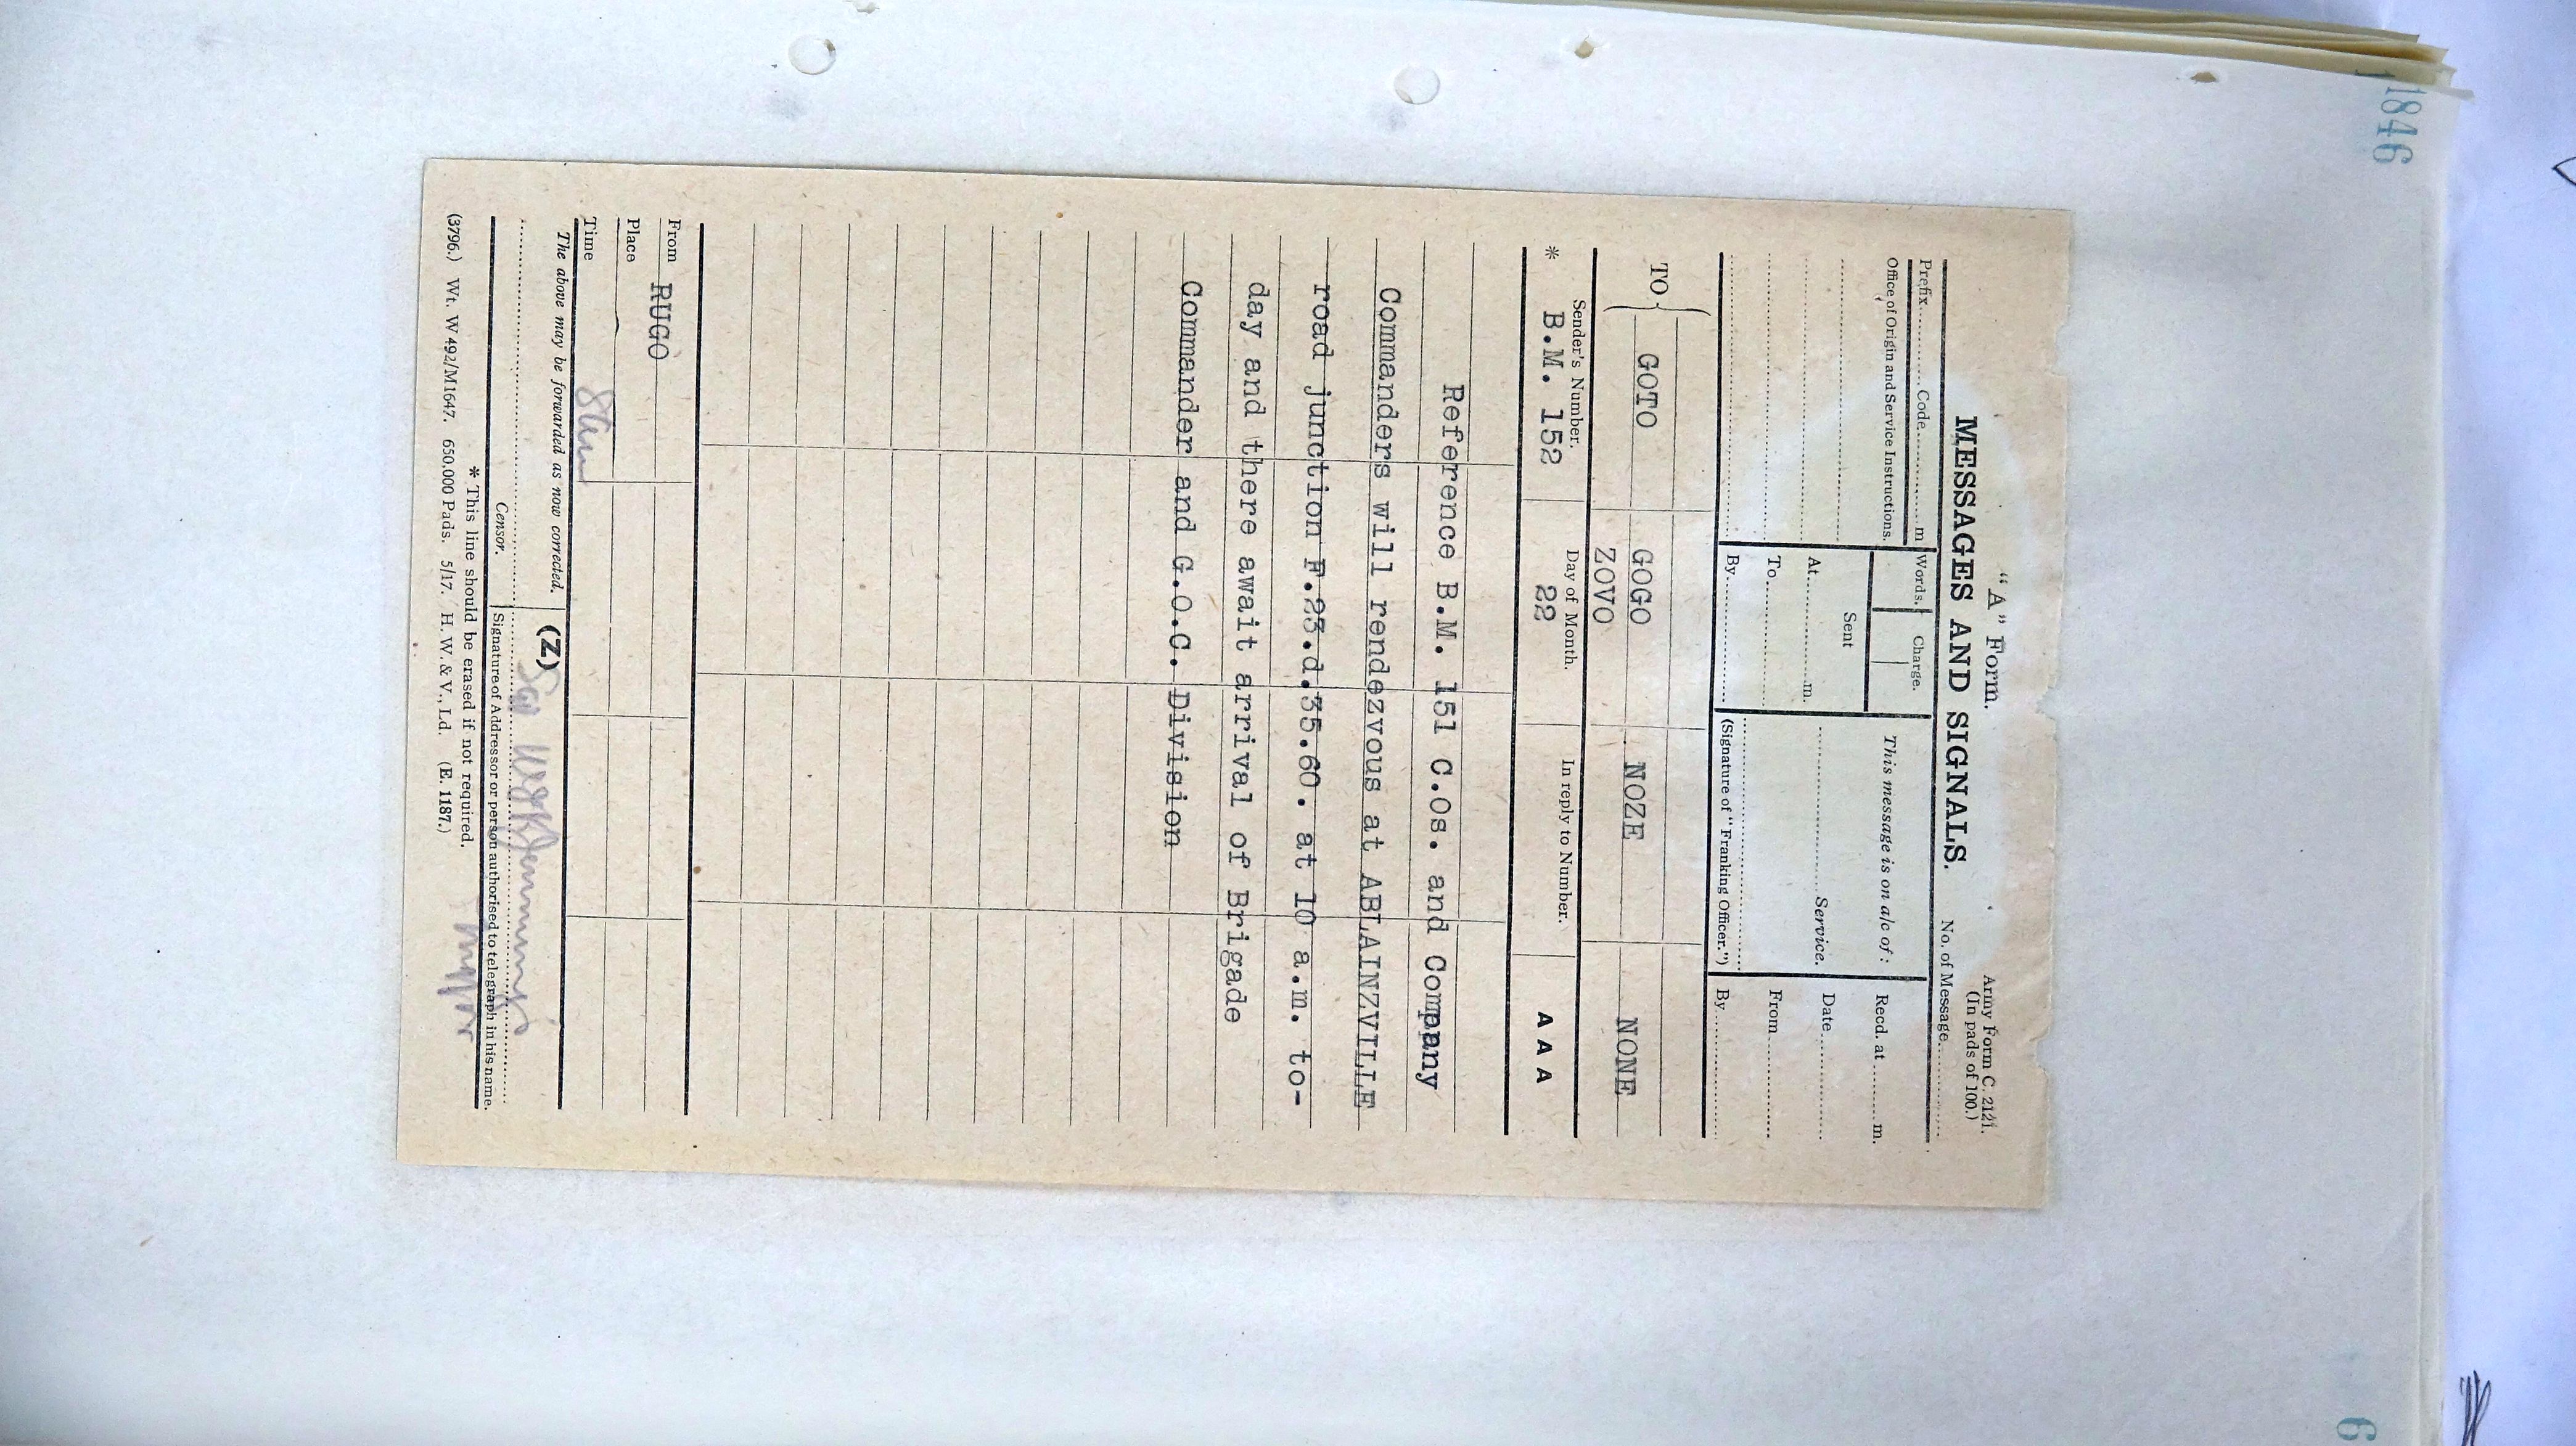 1846
"A" Form.
Army Form C. 2121.
(In pads of 100.)
MESSAGES AND SIGNALS.
No. of Message
Prefix Code m
Words. Charge.
This message is on a/c of :
Recd. at m.
Office of Origin and Service Instructions.
Sent
Date
At m.
Service.
To
From
By
(Signature of "Franking Officer.")
By
TO GOTO GOGO NOZE NONE
ZOVO
Sender's Number. Day of Month. In reply to Number.
* B.M. 152 22 A A A
Reference B.M. 151 C.Os. and Company
Commanders will rendezvous at ABLAINZVILLE
road junction F.23.d.35.60. at 10 a.m. to-
day and there await arrival of Brigade
Commander and G.O.C. Division
From RUGO
Place
Time
The above may be forwarded as now corrected. (Z)
Censor. Signature of Addressor or person authorised to telegraph in his name.
* This line should be erased if not required.
(3796.) Wt. W 492/M1647. 650,000 Pads. 5/17. H. W. & V., Ld. (E. 1187.)
6